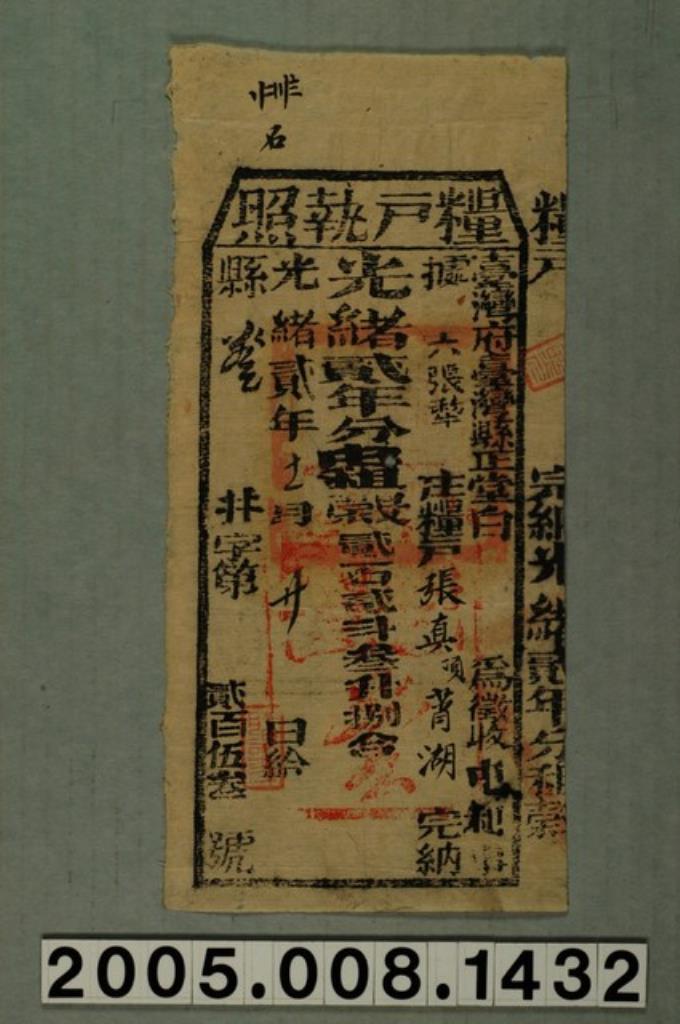 糧戶
完納光緒貳年分租穀
糧戶執照
臺灣府臺灣縣正堂白 為徵收屯租事
據 六張犁 庄糧戶張真項菁湖 完納
光緒貳年分屯租榖貳百貳斗叁升捌合
光緒貳年十一月 廿 日給
縣 非字第 貳百伍叁 號
2005.008.1432